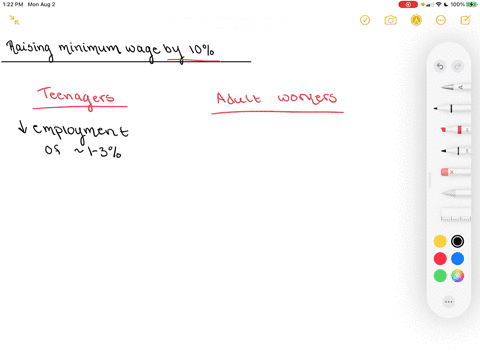 1:22 PM Mon Aug 2
100%
Raising minimum wage by 10%
Teenagers
Adult workers
↓ employment
of ~1-3%